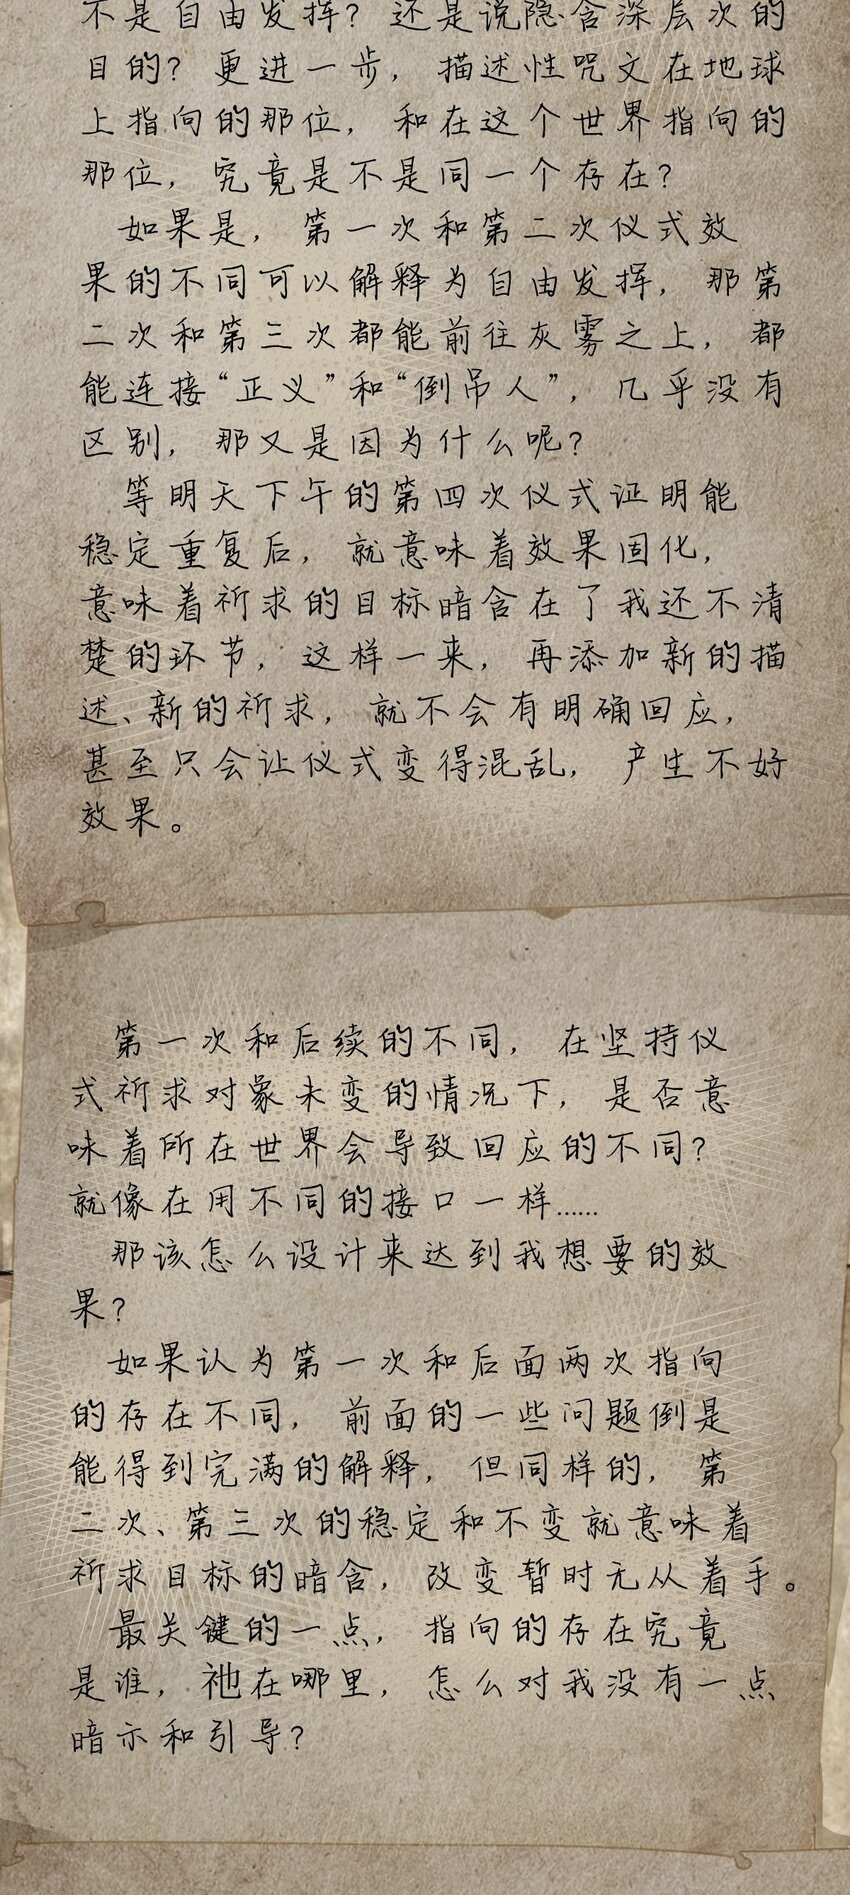 不是自由发挥？还是说隐含深层次的
目的？更进一步，描述性咒文在地球
上指向的那位，和在这个世界指向的
那位，究竟是不是同一个存在？
如果是，第一次和第二次仪式效
果的不同可以解释为自由发挥，那第
二次和第三次都能前往灰雾之上，都
能连接“正义”和“倒吊人”，几乎没有
区别，那又是因为什么呢？
等明天下午的第四次仪式证明能
稳定重复后，就意味着效果固化，
意味着祈求的目标暗含在了我还不清
楚的环节，这样一来，再添加新的描
述、新的祈求，就不会有明确回应，
甚至只会让仪式变得混乱，产生不好
效果。
第一次和后续的不同，在坚持仪
式祈求对象未变的情况下，是否意
味着所在世界会导致回应的不同？
就像在用不同的接口一样……
那该怎么设计来达到我想要的效
果？
如果认为第一次和后面两次指向
的存在不同，前面的一些问题倒是
能得到完满的解释，但同样的，第
二次、第三次的稳定和不变就意味着
祈求目标的暗含，改变暂时无从着手。
最关键的一点，指向的存在究竟
是谁，祂在哪里，怎么对我没有一点
暗示和引导？